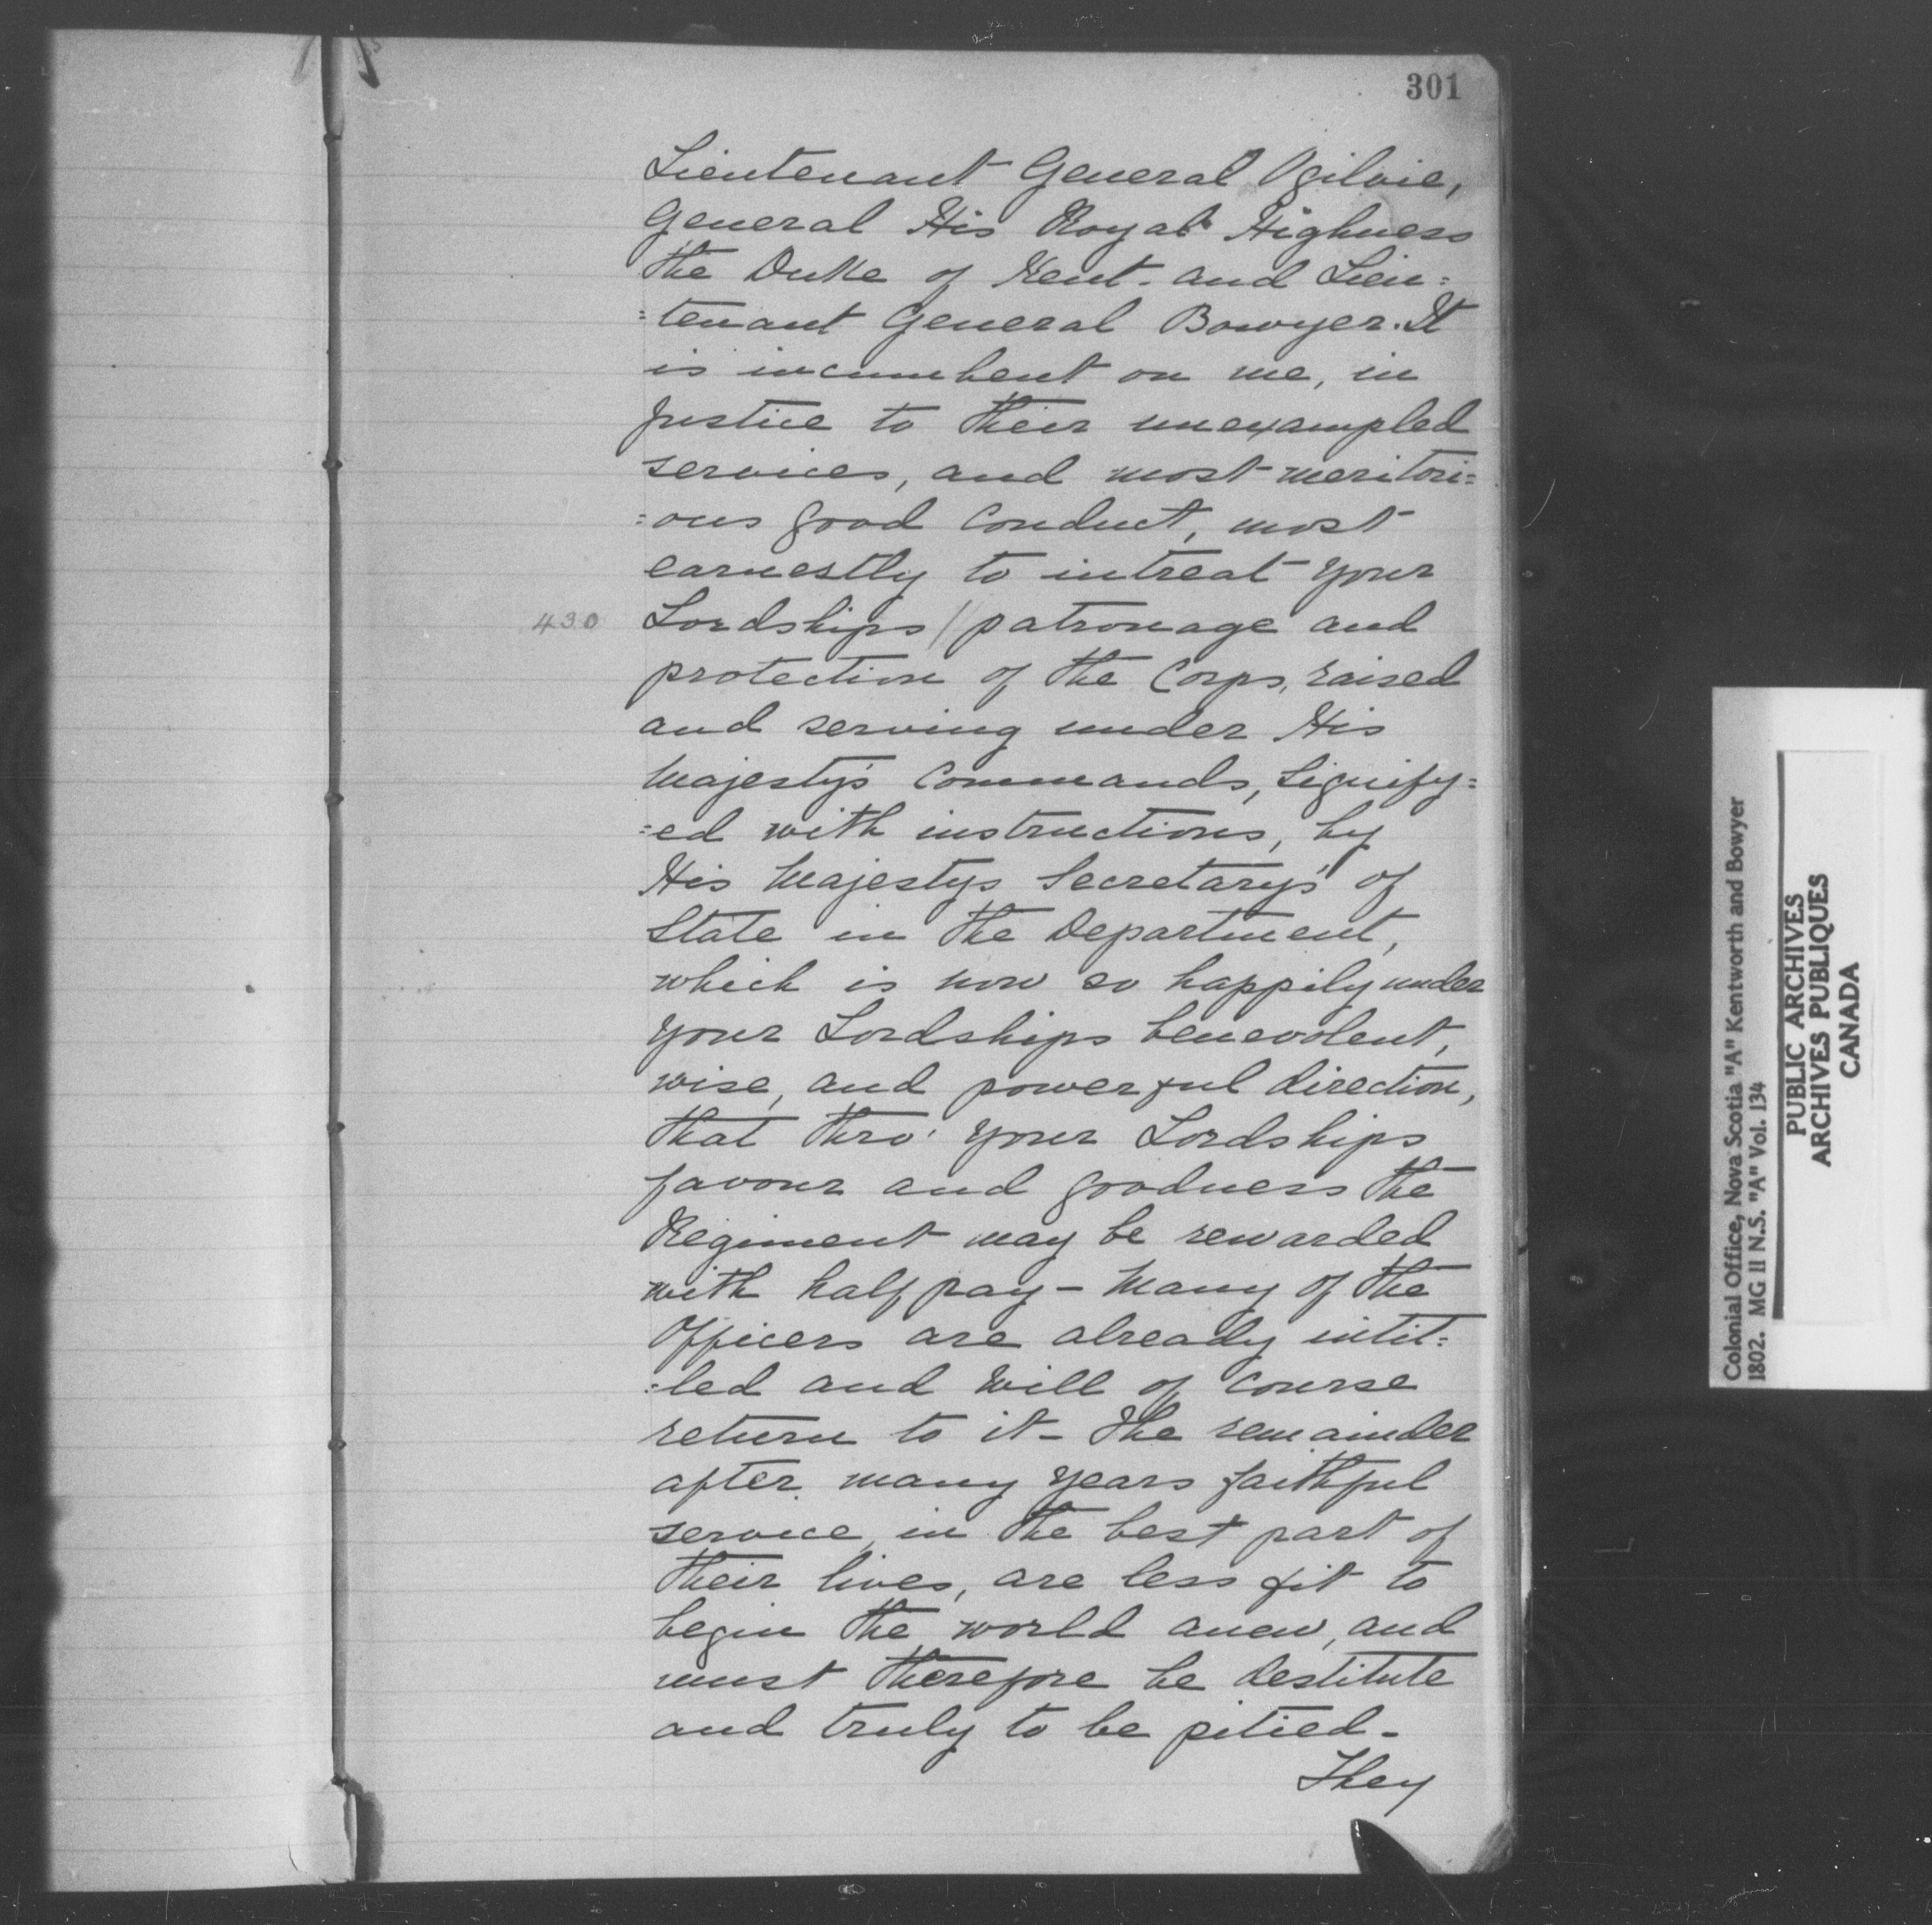 301
Lieutenant General Ogilvie,
General His Royal Highness
the Duke of Kent. and Lieu=
=tenant General Bowyer. It
is incumbent on me, in
justice to their unexampled
services, and most meritori=
=ous good Conduct, most
earnestly to intreat your
430 Lordships // patronage and
protection of the Corps, raised
and serving under His
Majesty's Commands, signify=
=ed with instructions, by
His Majestys Secretary's of
State in the Department,
which is now so happily under
your Lordships benevolent,
wise, and powerful direction,
that thro' your Lordships
favour and goodness the
Regiment may be rewarded
with half pay – Many of the
Officers are already intit=
=led and will of course
return to it – The remainder
after many years faithful
service, in the best part of
their lives, are less fit to
begin the world anew, and
must therefore be destitute
and truly to be pitied –
They
Colonial Office, Nova Scotia "A" Kentworth and Bowyer
1802. MG II N.S. "A" Vol. 134
PUBLIC ARCHIVES
ARCHIVES PUBLIQUES
CANADA